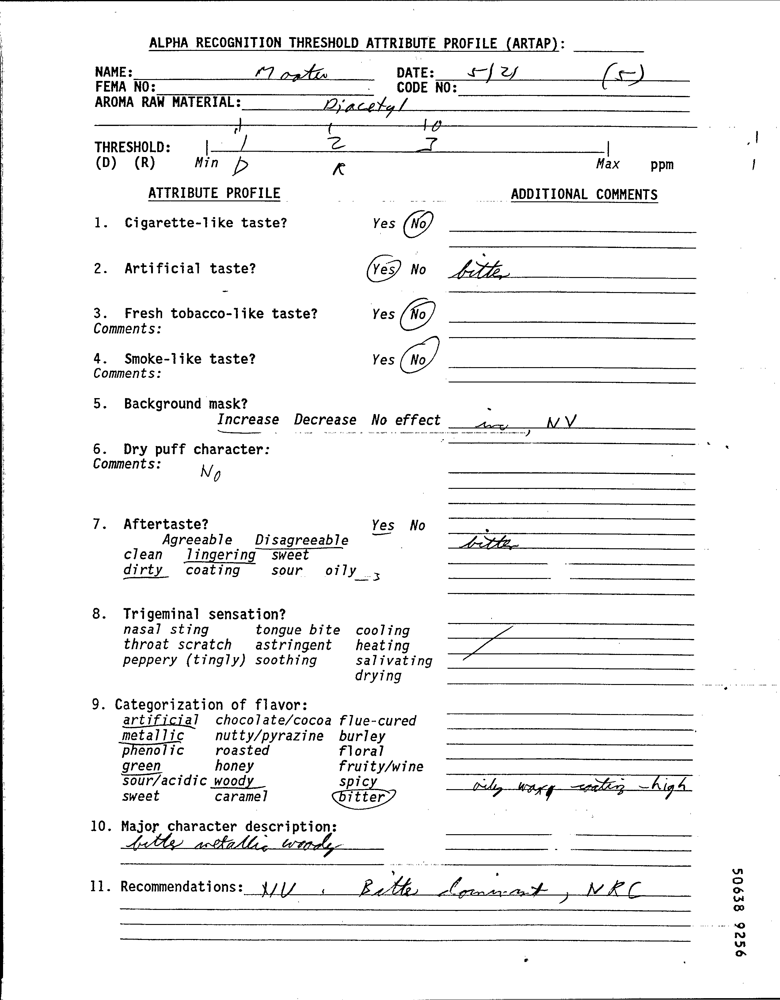 ALPHA RECOGNITION THRESHOLD ATTRIBUTE PROFILE (ARTAP):
NAME: DATE: 5/21 (5)
FEMA NO: CODE NO:
AROMA RAW MATERIAL: Diacetyl
.1 1 10
THRESHOLD: 1 2 3
(D) (R) Min D R Max ppm
ATTRIBUTE PROFILE ADDITIONAL COMMENTS
1. Cigarette-like taste? Yes No
2. Artificial taste? Yes No bitter
3. Fresh tobacco-like taste? Yes No
Comments:
4. Smoke-like taste? Yes No
Comments:
5. Background mask?
Increase Decrease No effect inc, NV
6. Dry puff character:
Comments: No
7. Aftertaste? Yes No
Agreeable Disagreeable bitter
clean lingering sweet
dirty coating sour oily 3
8. Trigeminal sensation?
nasal sting tongue bite cooling
throat scratch astringent heating
peppery (tingly) soothing salivating
drying
9. Categorization of flavor:
artificial chocolate/cocoa flue-cured
metallic nutty/pyrazine burley
phenolic roasted floral
green honey fruity/wine
sour/acidic woody spicy oily waxy coating - high
sweet caramel bitter
10. Major character description:
bitter metallic woody
11. Recommendations: NV . Bitter dominant, NRC
50638 9256